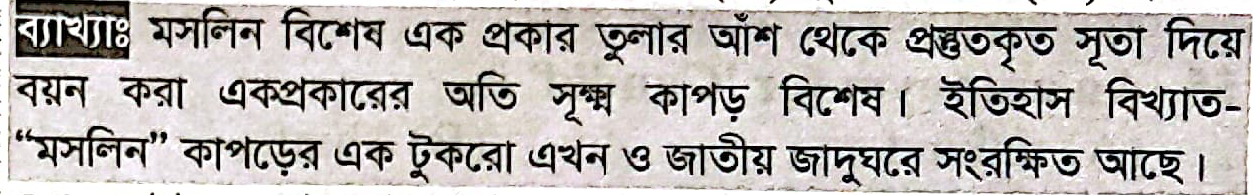 ব্যাখ্যাঃ মসলিন বিশেষ এক প্রকার তুলার আঁশ থেকে প্রস্তুতকৃত সূতা দিয়ে
বয়ন করা একপ্রকারের অতি সূক্ষ্ম কাপড় বিশেষ। ইতিহাস বিখ্যাত-
“মসলিন” কাপড়ের এক টুকরো এখন ও জাতীয় জাদুঘরে সংরক্ষিত আছে।